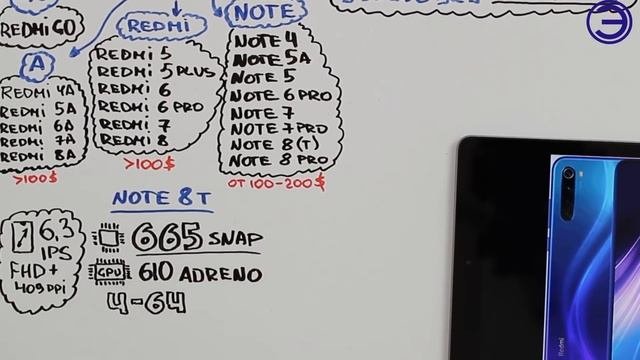 REDMI GO
A
REDMI 4A
REDMI 5A
REDMI 6A
REDMI 7A
REDMI 8A
>100$
REDMI
REDMI 5
REDMI 5 PLUS
REDMI 6
REDMI 6 PRO
REDMI 7
REDMI 8
>100$
NOTE
NOTE 4
NOTE 5A
NOTE 5
NOTE 6 PRO
NOTE 7
NOTE 7 PRO
NOTE 8(T)
NOTE 8 PRO
ОТ 100-200$
NOTE 8T
6,3
IPS
FHD+
409 DPI
665 SNAP
GPU 610 ADRENO
4-64
Redmi
Э